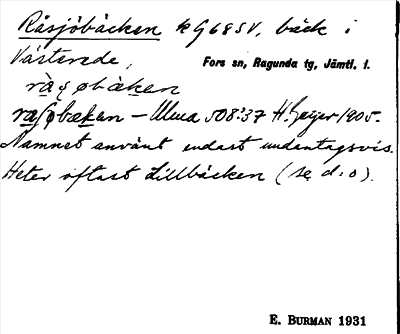 Råsjöbäcken k G 68 SV, bäck i
Västerede, Fors sn, Ragunda tg, Jämtl. l.
ràsøbäken
raſøbækan – Uma 508:37 H. Geijer 1905.
Namnet använt endast undantagsvis.
Heter oftast Lillbäcken (se d. o).
E. BURMAN 1931